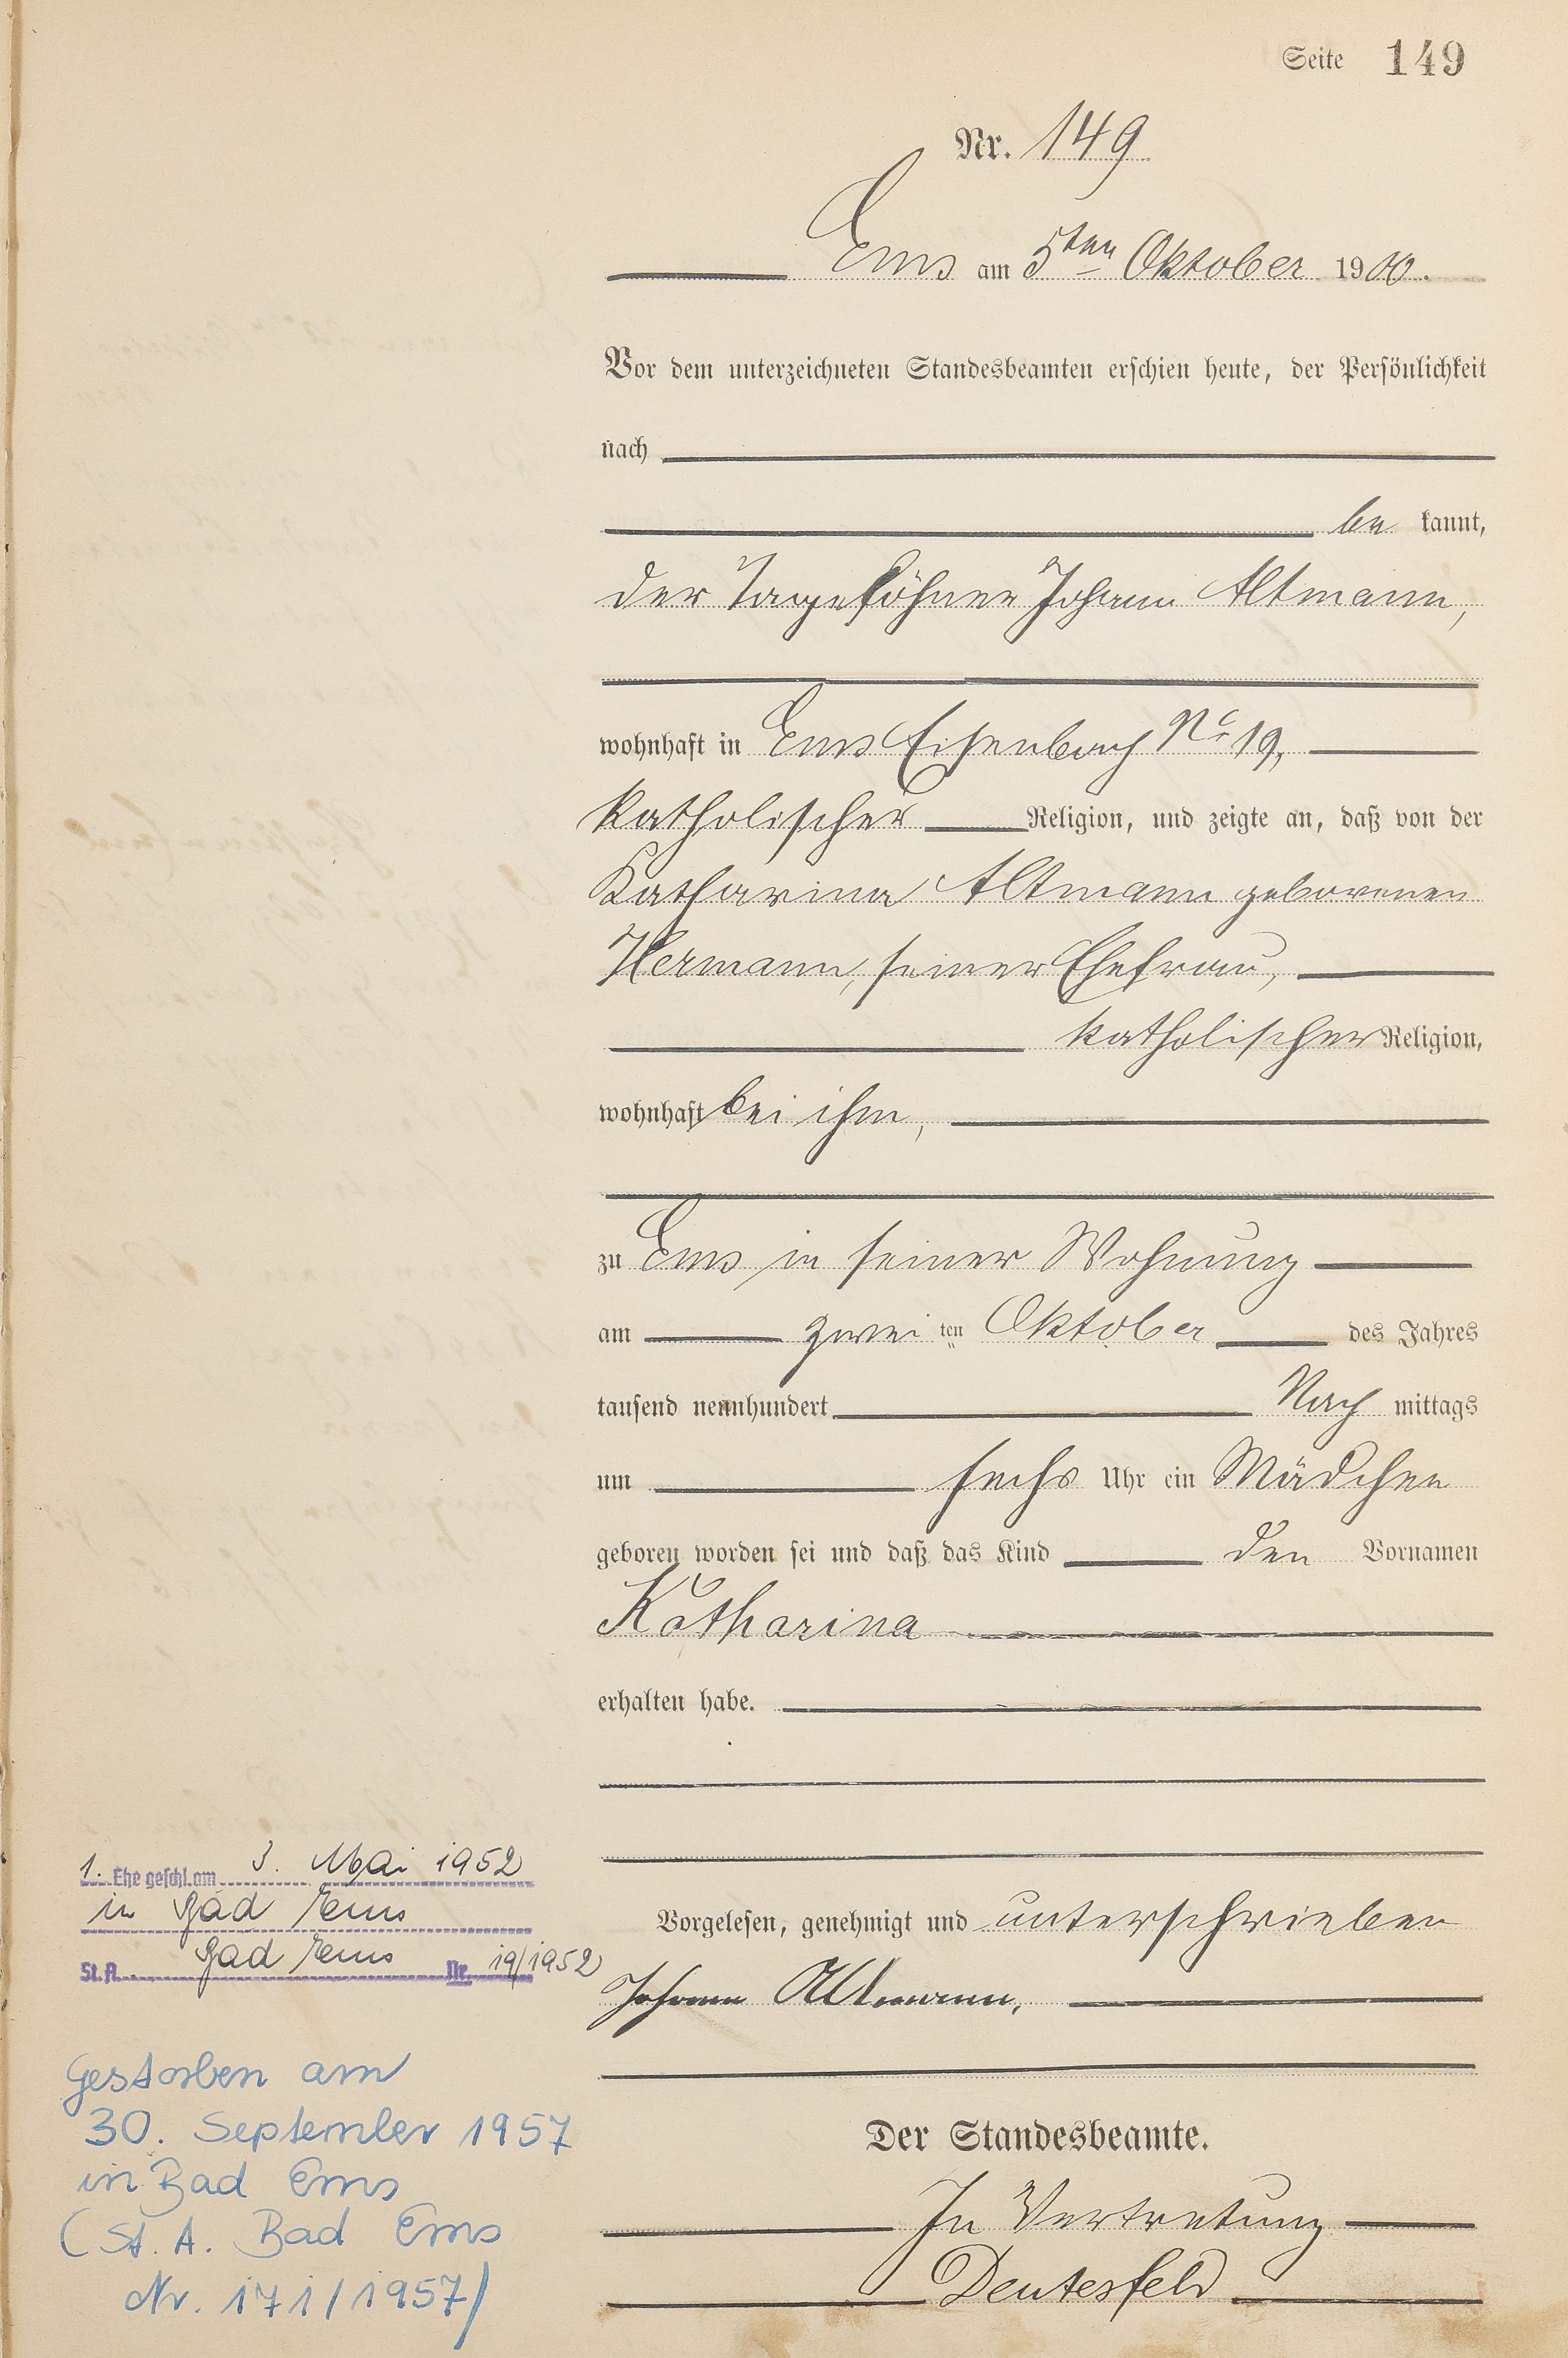 Seite 149
Nr. 149
Ems am 5ten Oktober 1900.
Vor dem unterzeichneten Standesbeamten erschien heute, der Persönlichkeit
nach
be kannt,
der Tagelöhner Johann Altmann,
wohnhaft in Ems Eisenbach No 19,
katholischer Religion, und zeigte an, daß von der
Katharina Altmann geborenen
Hermann, seiner Ehefrau,
katholischer Religion,
wohnhaft bei ihm,
zu Ems in seiner Wohnung
am zwei ten Oktober des Jahres
tausend neunhundert Nach mittags
um sechs Uhr ein Mädchen
geboren worden sei und daß das Kind den Vornamen
Katharina
erhalten habe.
Vorgelesen, genehmigt und unterschrieben
Johann Altmann,
Der Standesbeamte.
In Vertretung
Deutesfeld
1. Ehe geschl. am 3. Mai 1952
in Bad Ems
St. A. Bad Ems Nr. 19/1952
Gestorben am
30. September 1957
in Bad Ems
(St. A. Bad Ems
Nr. 171/1957)